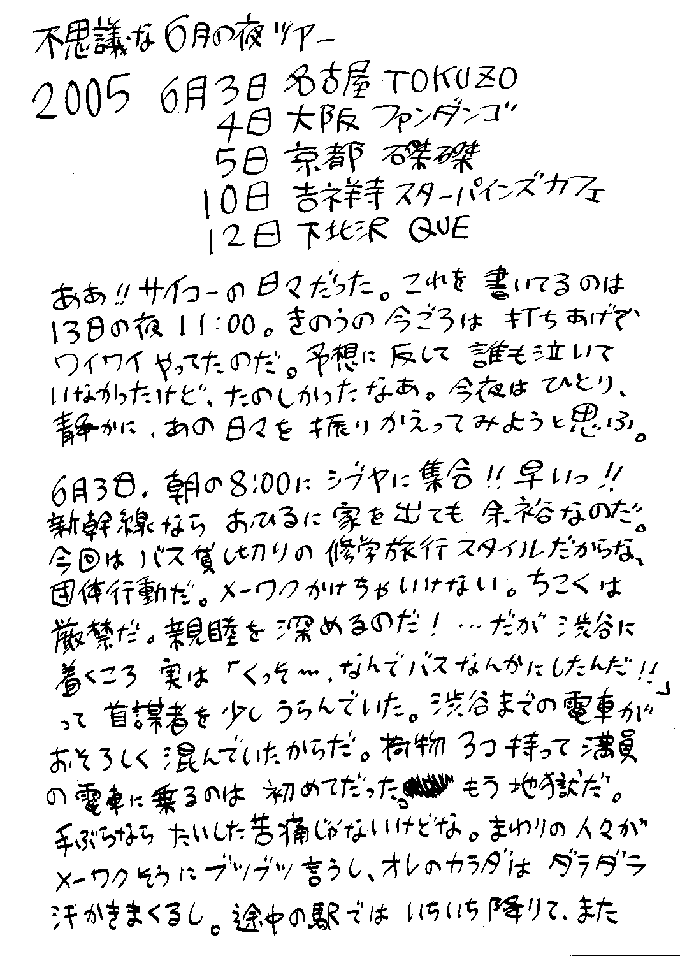 不思議な6月の夜ツアー
2005 6月3日 名古屋 TOKUZO
4日 大阪 ファンダンゴ
5日 京都 磔磔
10日 吉祥寺 スターパインズカフェ
12日 下北沢 QUE
ああ!! サイコーの日々だった。これを書いてるのは
13日の夜11:00。きのうの今ごろは打ちあげで
ワイワイやってたのだ。予想に反して誰も泣いて
いなかったけど、たのしかったなあ。今夜はひとり、
静かに、あの日々を振りかえってみようと思ふ。
6月3日、朝の8:00にシブヤに集合!! 早いっ!!
新幹線ならおひるに家を出ても余裕なのだ。
今回はバス貸し切りの修学旅行スタイルだからな、
団体行動だ。メーワクかけちゃいけない。ちこくは
厳禁だ。親睦を深めるのだ! …だが渋谷に
着くころ実は「くっそ〜、なんでバスなんかにしたんだ!!」
って首謀者を少しうらんでいた。渋谷までの電車が
おそろしく混んでいたからだ。荷物3コ持って満員
の電車に乗るのは初めてだった。もう地獄だ。
手ぶらならたいした苦痛じゃないけどな。まわりの人々が
メーワクそうにブツブツ言うし、オレのカラダはダラダラ
汗かきまくるし。途中の駅ではいちいち降りて、また